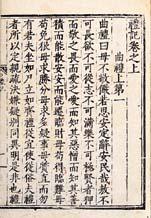 禮記卷之上
曲禮上第一
曲禮曰毋不敬儼若思安定辭安民哉敖不
可長欲不可從志不可滿樂不可極賢者狎
而敬之畏而愛之愛而知其惡憎而知其善
積而能散安安而能遷臨財毋苟得臨難毋
苟免狠毋求勝分毋求多疑事毋質直而勿
有若夫坐如尸立如齊禮從宜使從俗夫禮
者所以定親疏決嫌疑別同異明是非也禮